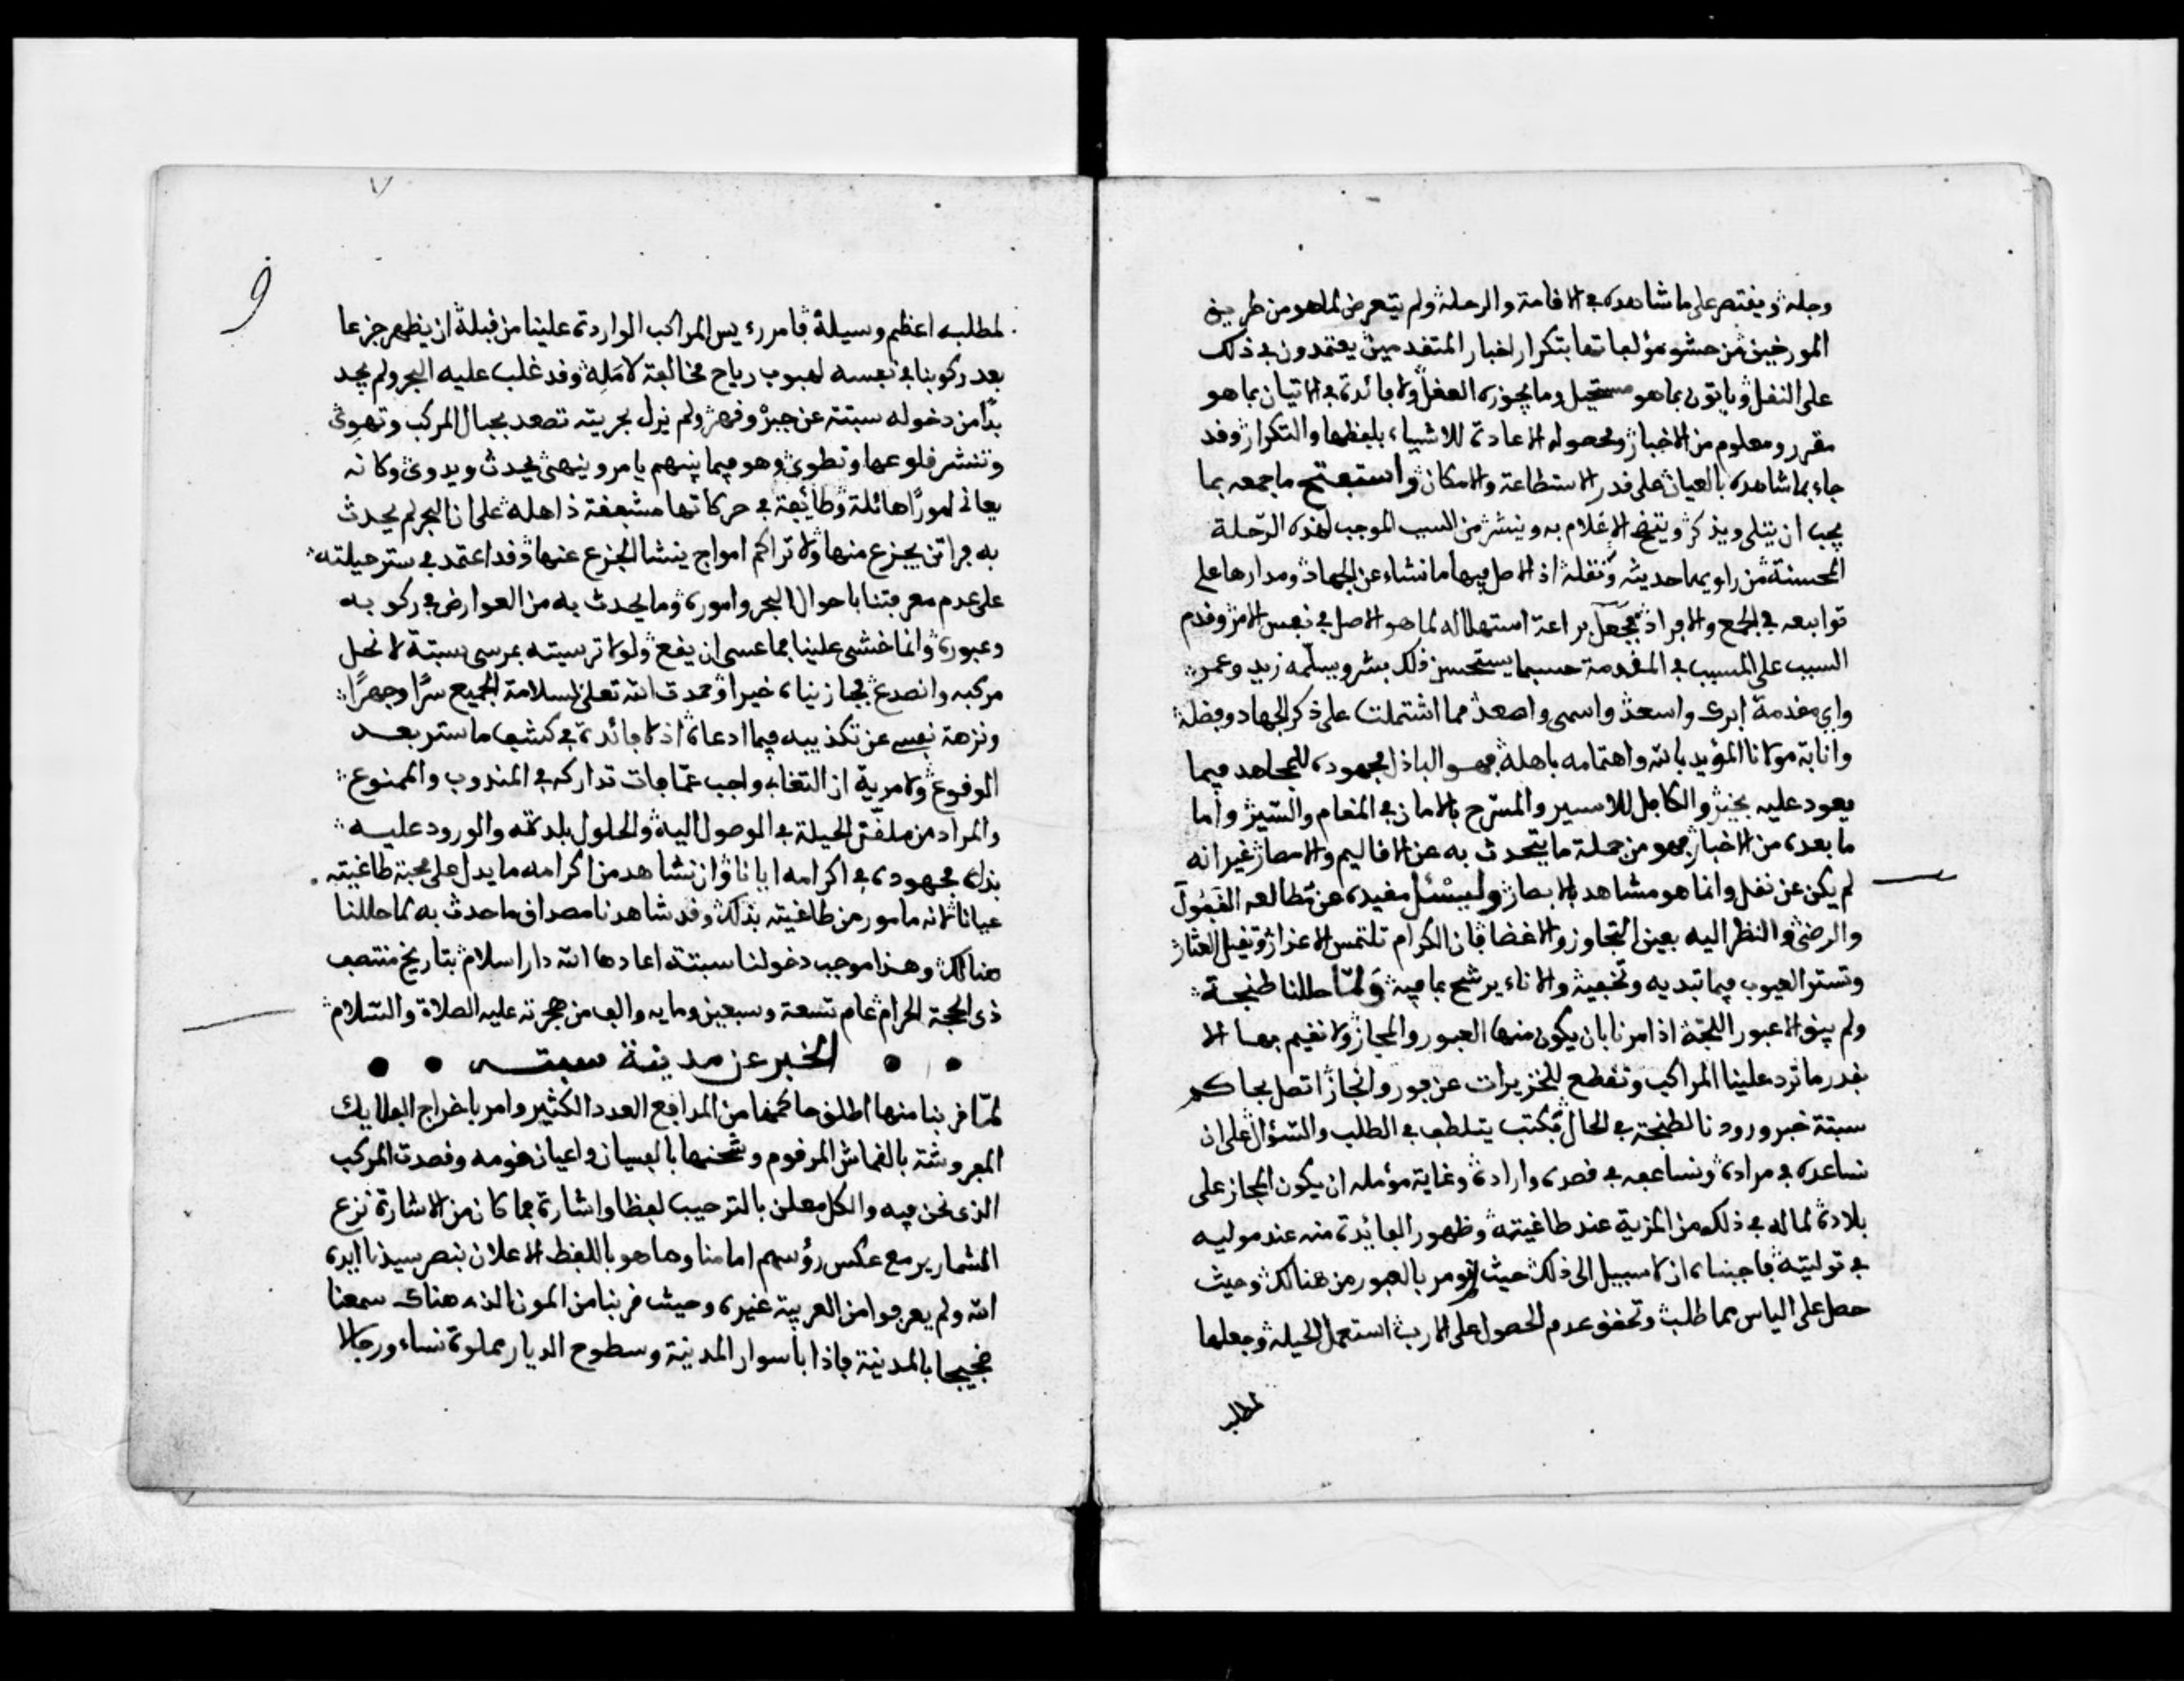 وجله ويقتصر على ما شاهده في الاقامة والرحلة ولم يتعرض لما هو من طريق
المورخين من حشو مؤلفاتها بتكرار اخبار المتقدمين يعتمدون في ذلك
على النقل وياتون بما هو مستحيل وما يجوزه العقل ولا فائدة في الاتيان بما هو
مقرر ومعلوم من الاخبار ومحصوله الاعادة للاشياء بلفظها والتكرار وقد
جاء بما شاهده بالعيان على قدر الاستطاعة والامكان واستفتح ما جمعه بما
يجب ان يتلى ويذكر ويتضح الاعلام به وينشر من السبب الموجب لهذه الرحلة
المحسنة من راويها حديثه ونقله اذ الاصل فيها ما نشاء عن الجهاد ومدارها على
توابعه في الجمع والافراد فجعل براعة استهلاله لما هو الاصل في نفس الامر وقدم
السبب على المسبب في المقدمة حسبما يستحسن ذلك بشر ويسلمه زيد وعمر
واي مقدمة ابرى واسعد واسمى واصعد مما اشتملت على ذكر الجهاد وفضله
وانابة مولانا المؤيد بالله واهتمامه باهله فهو الباذل مجهوده للمجاهد فيما
يعود عليه بخير والكافل للاسير والمسرح بالامان في المقام والسير واما
ما بعده من الاخبار فهو من جملة ما يتحدث به عن الاقاليم والامصار غير انه
لم يكن عن نقل وانما هو مشاهد بالابصار وليسئل مفيده عن مطالعه القبول
والرضى والنظر اليه بعين التجاوز والاغضا فان الكرام تلتمس الاعذار وتقيل العثار
وتستر العيوب فيما تبديه وتخفيه والاناء يرشح بما فيه ولما حللنا طنجة
ولم يبق الا عبور اللجة اذ امرنا بان يكون منها العبور والمجاز ولا نقيم بها الا
بقدر ما ترد علينا المراكب ونقطع للخزيرات عن فور وانجاز اتصل بحاكم
سبتة خبر ورودنا لطنجة في الحال فكتب يتلطف في الطلب والسؤال على ان
نساعده في مراده ونساعفه في قصده واراده وغاية مؤمله ان يكون المجاز على
بلاده لما له في ذلك من المزية عند طاغيته وظهور الفائدة منه عند موليه
في توليته فاجبناه ان لا سبيل الى ذلك حيث لم نومر بالعبور من هنالك وحيث
حصل على الياس مما طلب وتحقق عدم الحصول على الارب استعمل الحيلة وجعلها
لمطلبه
٧
و
لمطلبه اعظم وسيلة فامر رءيس المراكب الواردة علينا من قبله ان يظهر جزعا
بعد ركوبنا في نفسه لهبوب رياح مخالفة لامله وقد غلب عليه البحر ولم يجد
بدا من دخوله سبتة عن جبر وقهر ولم يزل بحريته تصعد بجبال المركب وتهوي
وتنشر قلوعها وتطوي وهو فيما بينهم يامر وينهى يحدث ويدوي وكانه
يعاني امورا هائلة وطائفة في حركاتها مشعفة ذاهله على ان البحر لم يحدث
به فراتن يجزع منها ولا تراكم امواج ينشا الجزع عنها وقد اعتمد في ستر حيلته
على عدم معرفتنا باحوال البحر واموره وما يحدث به من العوارض في ركوبه
وعبوره وانما خشى علينا مما عسى ان يقع ولولا ترسيته بمرسى سبتة لانحل
مركبه وانصدع فجازيناه خيرا وحمدت الله تعلى لسلامة الجميع سرا وجهرا
ونزهة نفسي عن تكذيبه فيما ادعاه اذ لا فائدة في كشف ما ستر بعد
الوقوع ولا مرية ان التغابي واجب عما فات تداركه في المندوب والممنوع
والمراد من ملفق الحيلة في الوصول اليه والحلول ببلدته والورود عليه
بذله مجهوده في اكرامه ايانا وان نشاهد من اكرامه ما يدل على محبة طاغيته
عيانا لانه مامور من طاغيته بذلك وقد شاهدنا مصداق ما حدث به لما حللنا
هنالك وهذا موجب دخولنا سبتة اعادها الله دار اسلام بتاريخ منتصف
ذي الحجة الحرام عام تسعة وسبعين وماية والف من هجرته عليه الصلاة والسلام
الخبر عن مدينة سبتة
لما قربنا منها اطلق حاكمها من المدافع العدد الكثير وامر باخراج الفلايك
المفروشة بالقماش المرقوم وشحنها بالفسيان واعيان قومه وقصدت المركب
الذي نحن فيه والكل معلن بالترحيب لفظا واشارة فما كان من الاشارة نزع
الشمارير مع عكس رؤسهم امامنا وما هو باللفظ الاعلان بنصر سيدنا ايده
الله ولم يعرفوا من العربية غيره وحيث قربنا من المون الذي هناك سمعنا
ضجيجا بالمدينة فاذا باسوار المدينة وسطوح الديار مملوة نساء ورجالا